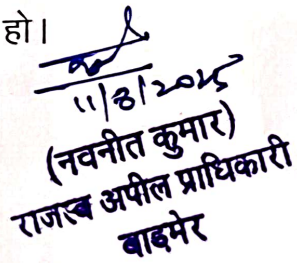 हो।
11/8/2025
(नवनीत कुमार)
राजस्व अपील प्राधिकारी
बाड़मेर